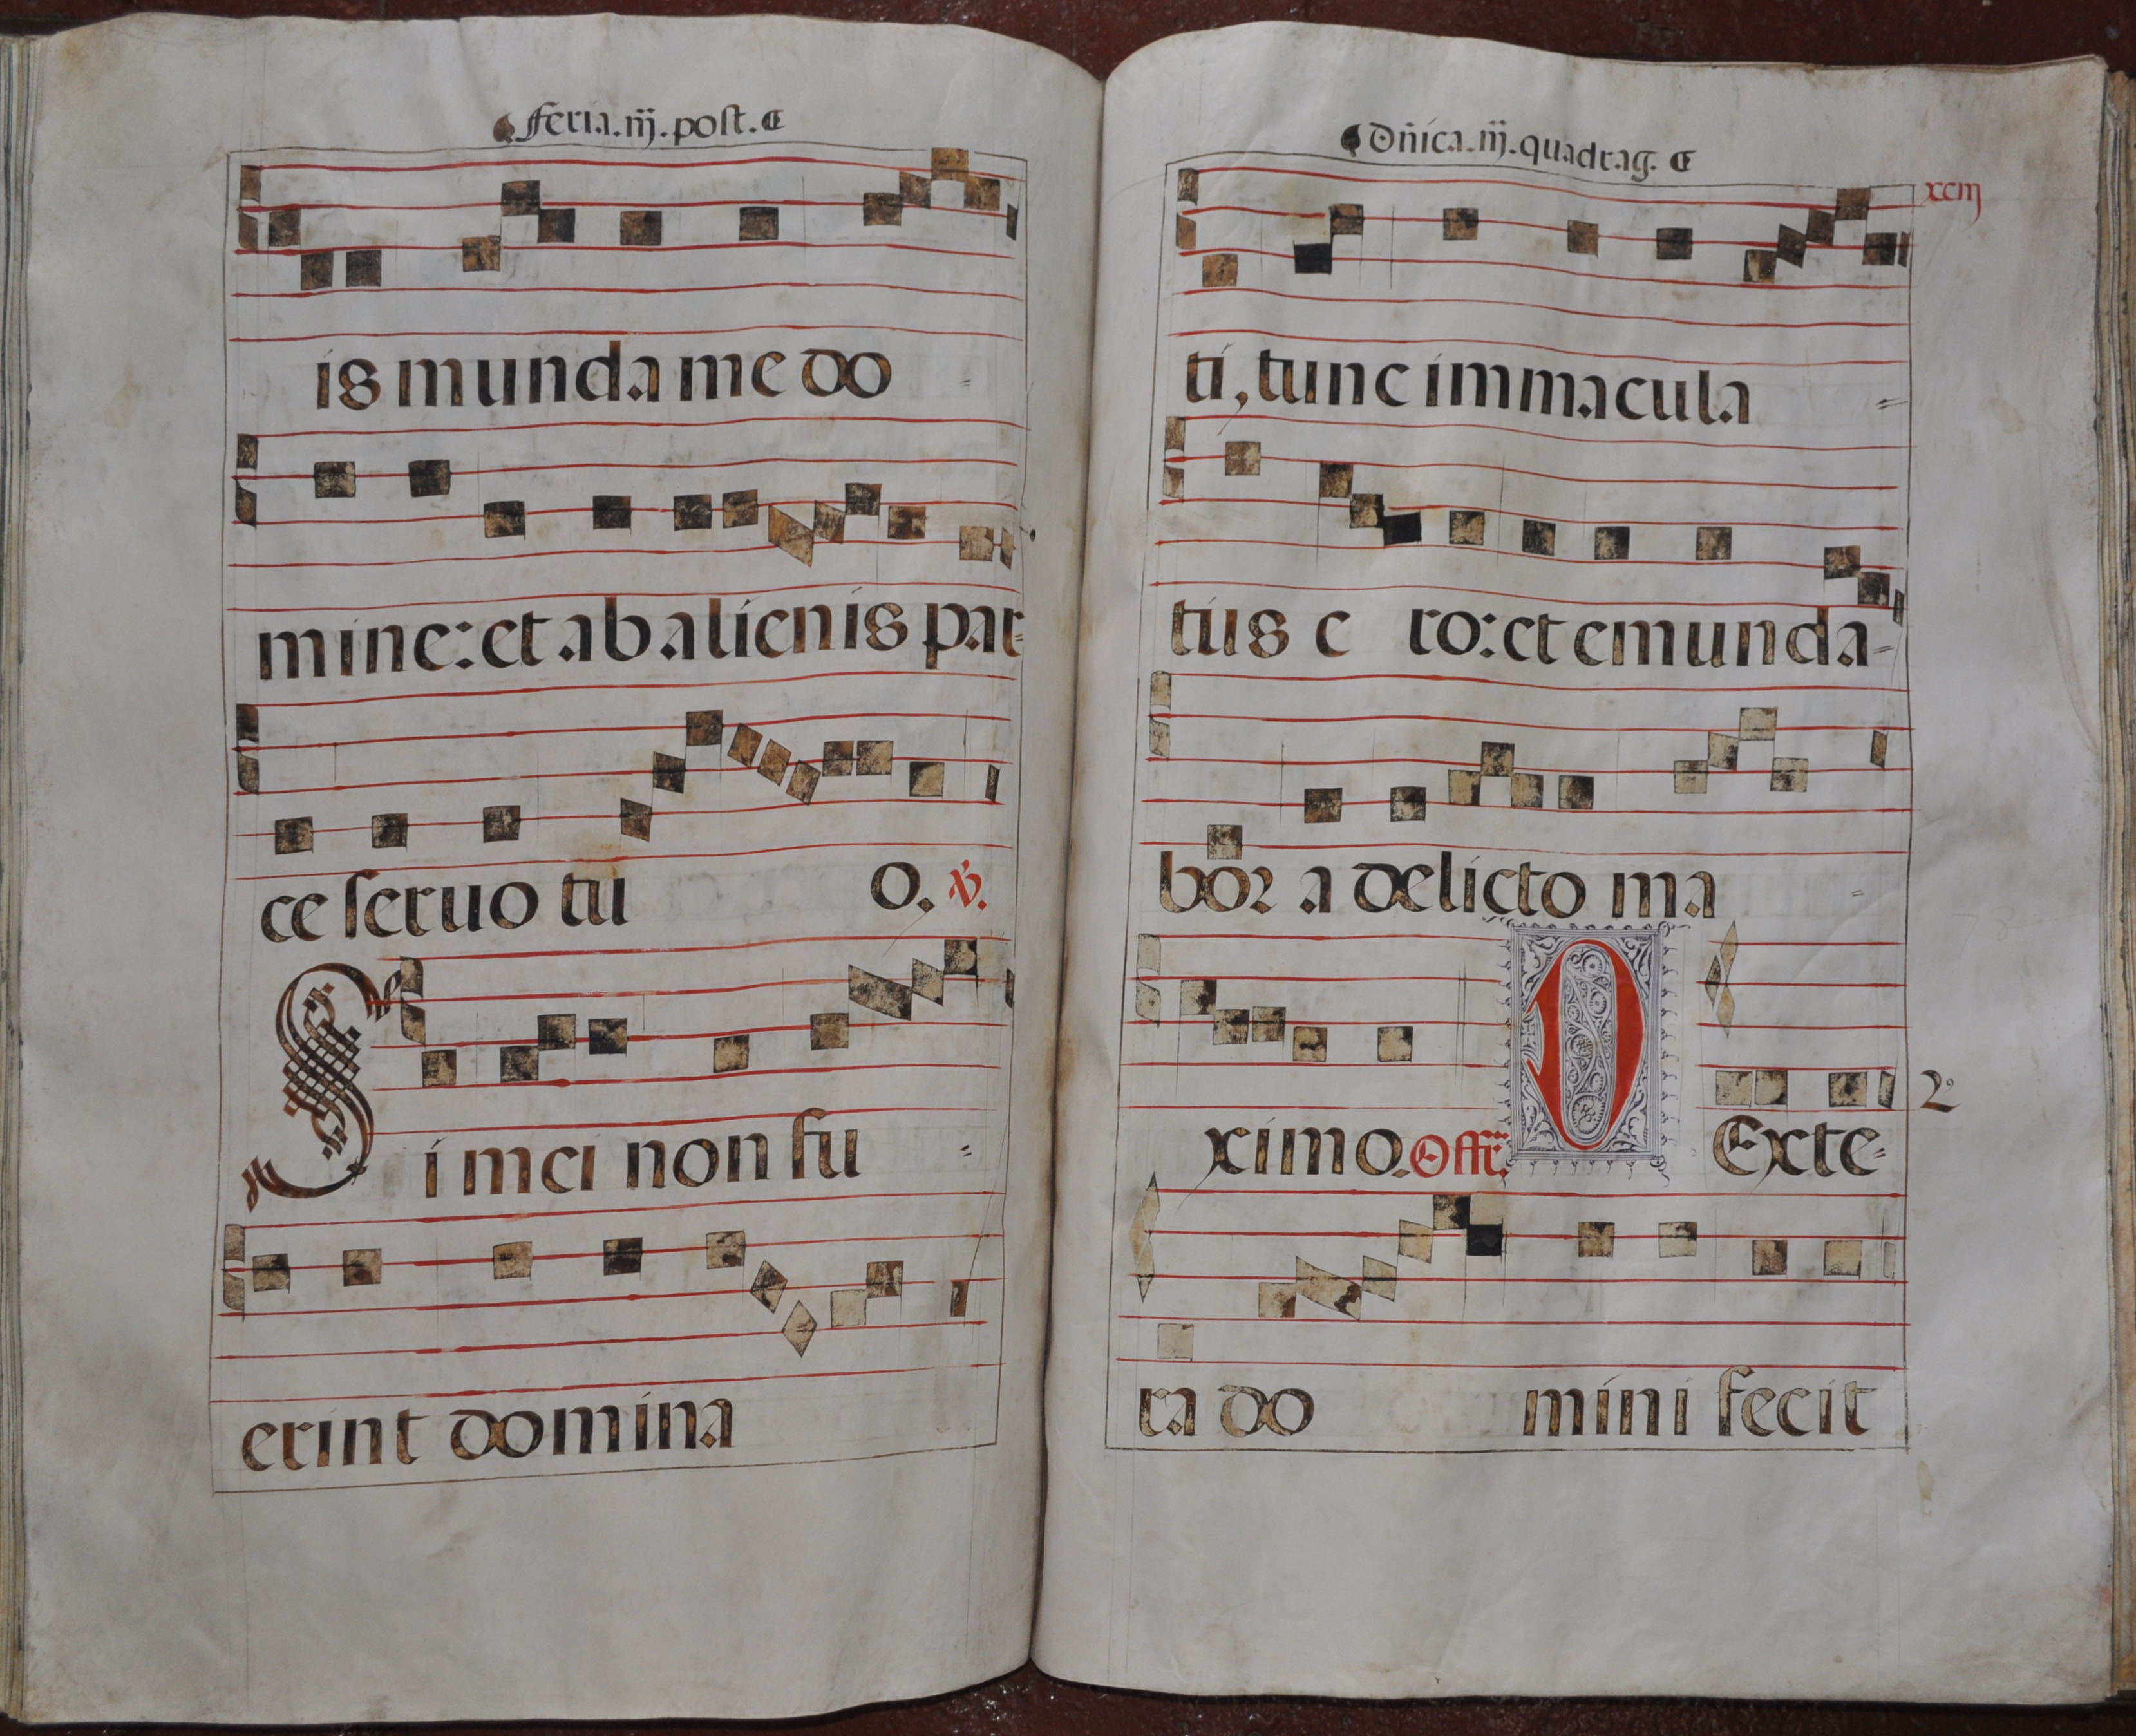 feria.iij.post.
is munda me do
mine: et ab alienis par=
ce seruo tu o. ℣.
Si mei non fu =
erint domina
Dñica.iij.quadrag.
xciij
ti, tunc immacula =
tus e ro: et emunda=
bor a delicto ma =
ximo. Offr̃. D Exte=
2º
ra do mini fecit